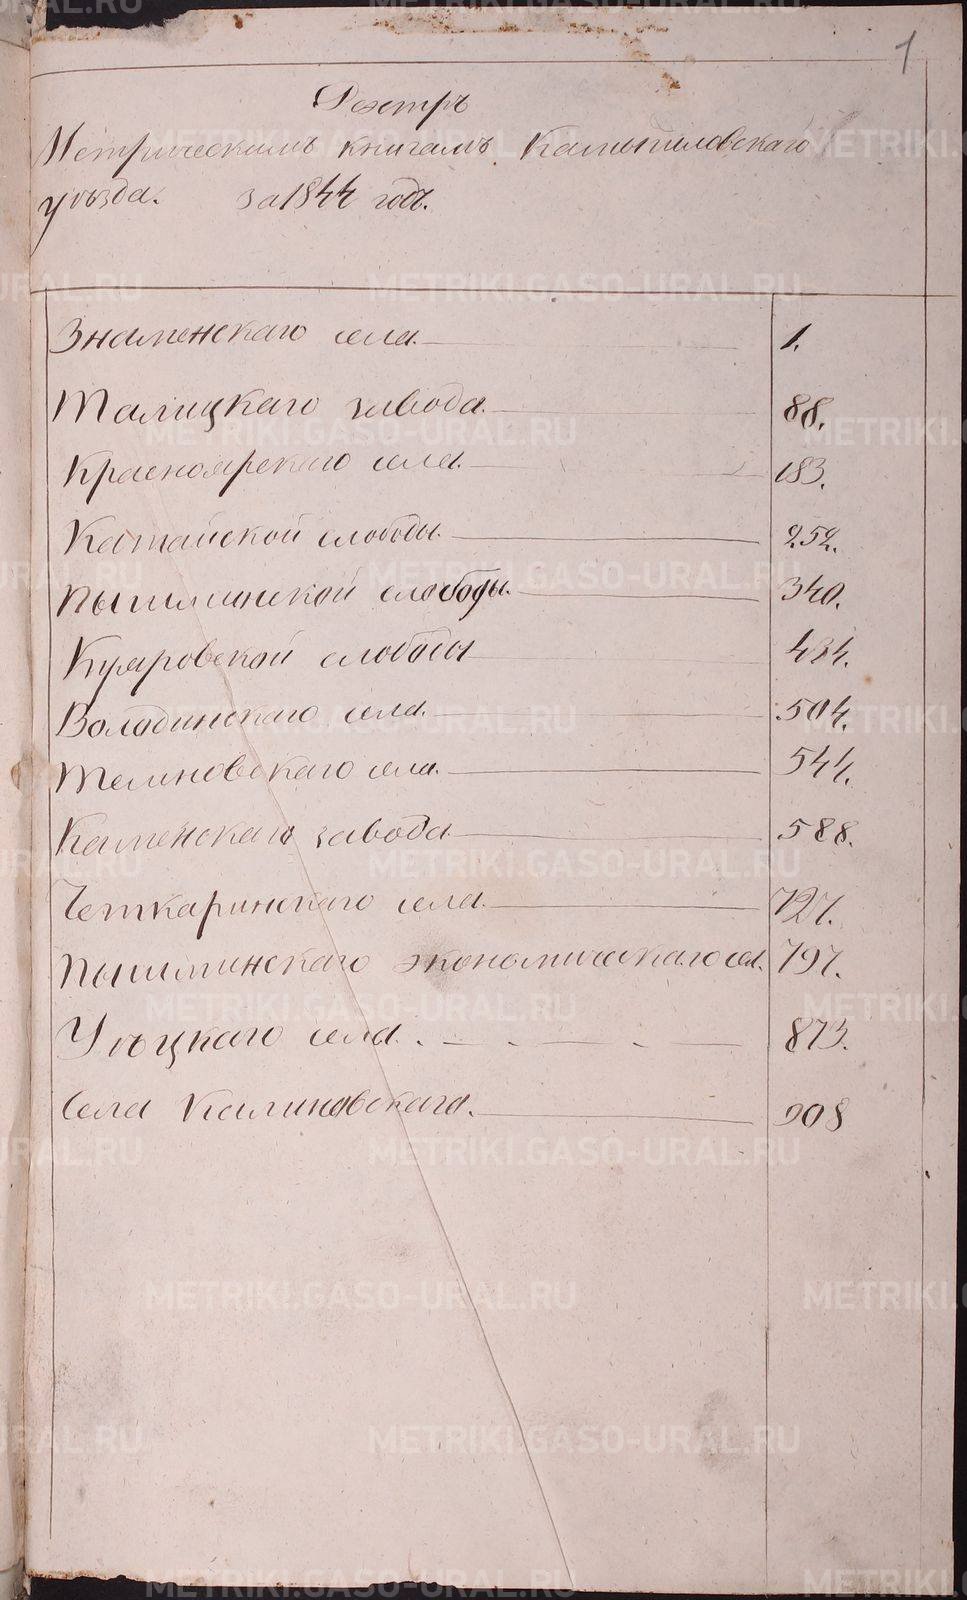 1
Реэстръ
Метрическимъ книгамъ Камышловскаго
уѣзда. за 1844 годъ.
Знаменскаго села. 1.
Талицкаго завода. 88.
Красноярскаго села. 183.
Катайской слободы. 252.
Пышминской слободы. 340.
Куяровской слободы 484.
Володинскаго села. 504.
Темновскаго села. 544.
Каменскаго завода 588.
Четкаринскаго села. 727.
Пышминскаго экономическаго сел. 797.
Уѣцкаго села. 873.
Села Калиновскаго. 908
METRIKI.GASO-URAL.RU